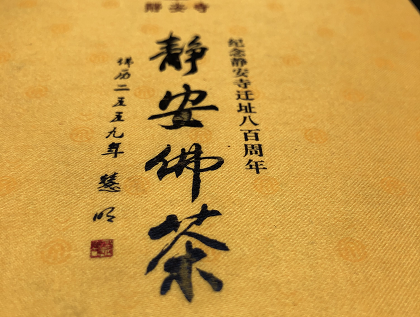 静安寺
纪念静安寺迁址八百周年
静安佛茶
佛历二五五九年 慧明